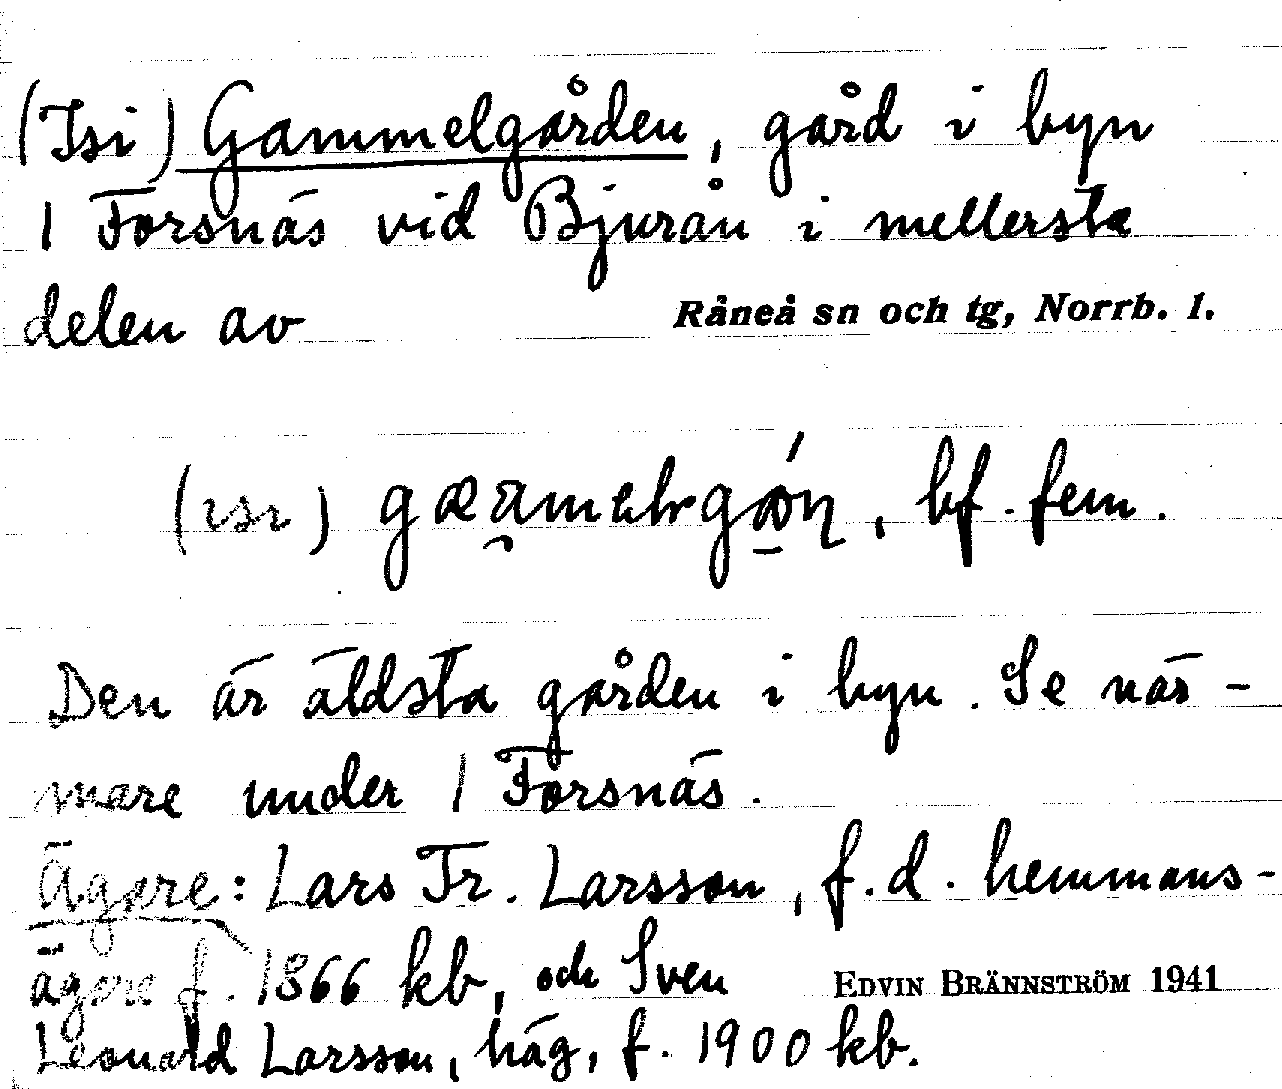 (Isi) Gammelgården, gård i byn
1 Forsnäs vid Bjurån i mellersta
delen av Råneå sn och tg, Norrb. l.
bf. fem.
Den är äldsta gården i byn. Se när-
mare under 1 Forsnäs.
Ägare: Lars Fr. Larsson, f.d. hemmans-
ägare f. 1866 kb, och Sven EDVIN BRÄNNSTRÖM 1941
Leonard Larsson, häg, f. 1900 kb.